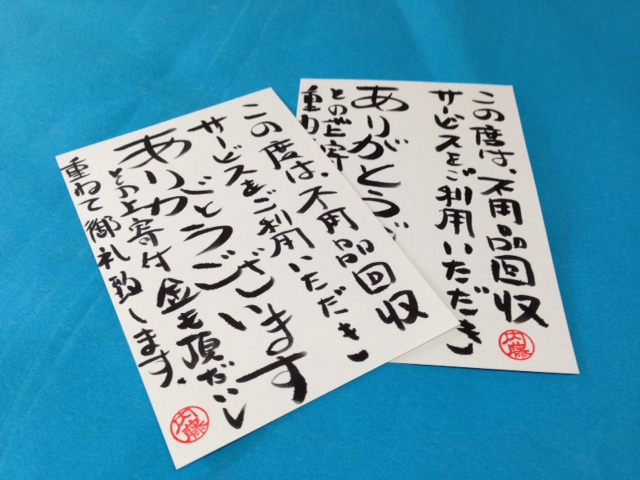 この度は、不用品回収
サービスをご利用いただき
ありがとうございます
その上寄付金も頂だいし
重ねて御礼致します。
内藤
この度は、不用品回収
サービスをご利用いただき
ありがとうご
その上寄
重ね
内藤